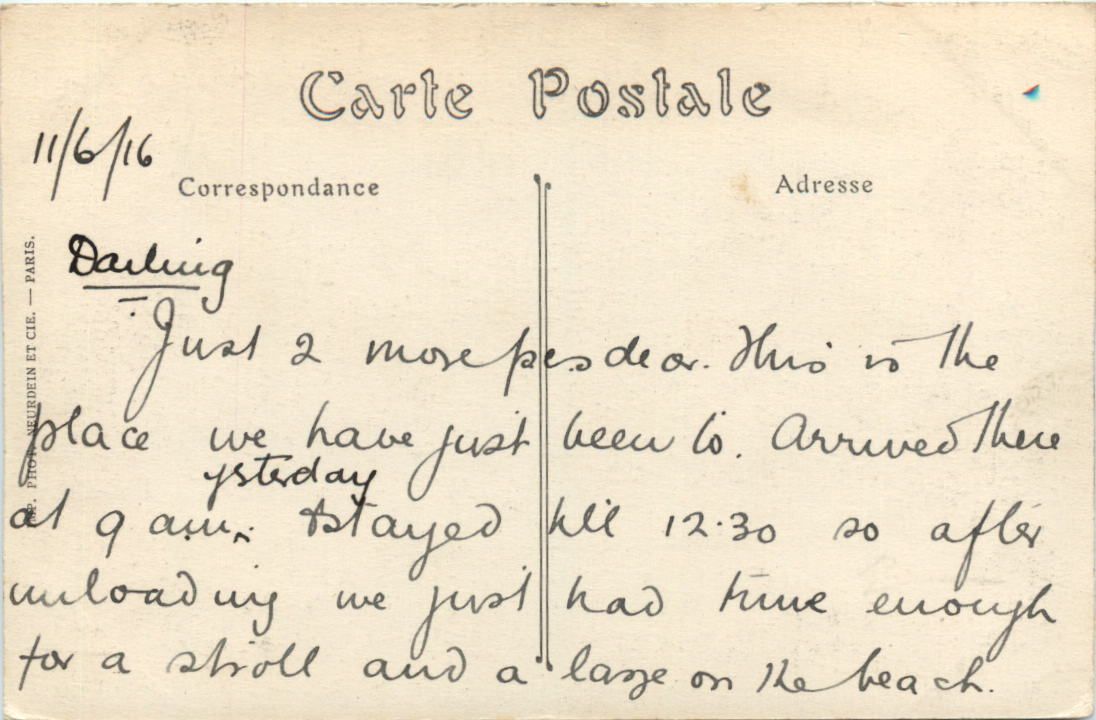 Carte Postale
11/6/16
Correspondance
Adresse
Darling
Just 2 more pcs dear. This is the
place we have just been to. Arrived there
ysterday
at 9 am. & stayed till 12.30 so after
unloading we just had time enough
for a stroll and a laze on the beach.
PHOT. NEURDEIN ET CIE. — PARIS.